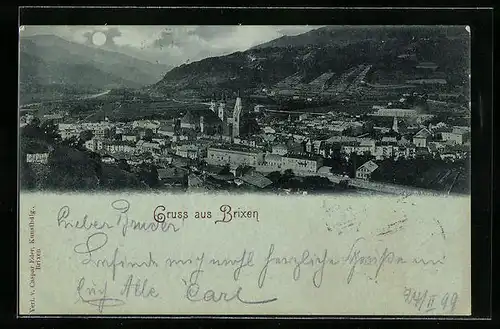 Gruss aus Brixen
Lieber Bruder!
Befinde mich wohl herzliche Grüße an
Euch Alle Carl
14/II 99
Verl. v. Caspar Eder, Kunsthdlg., Brixen.